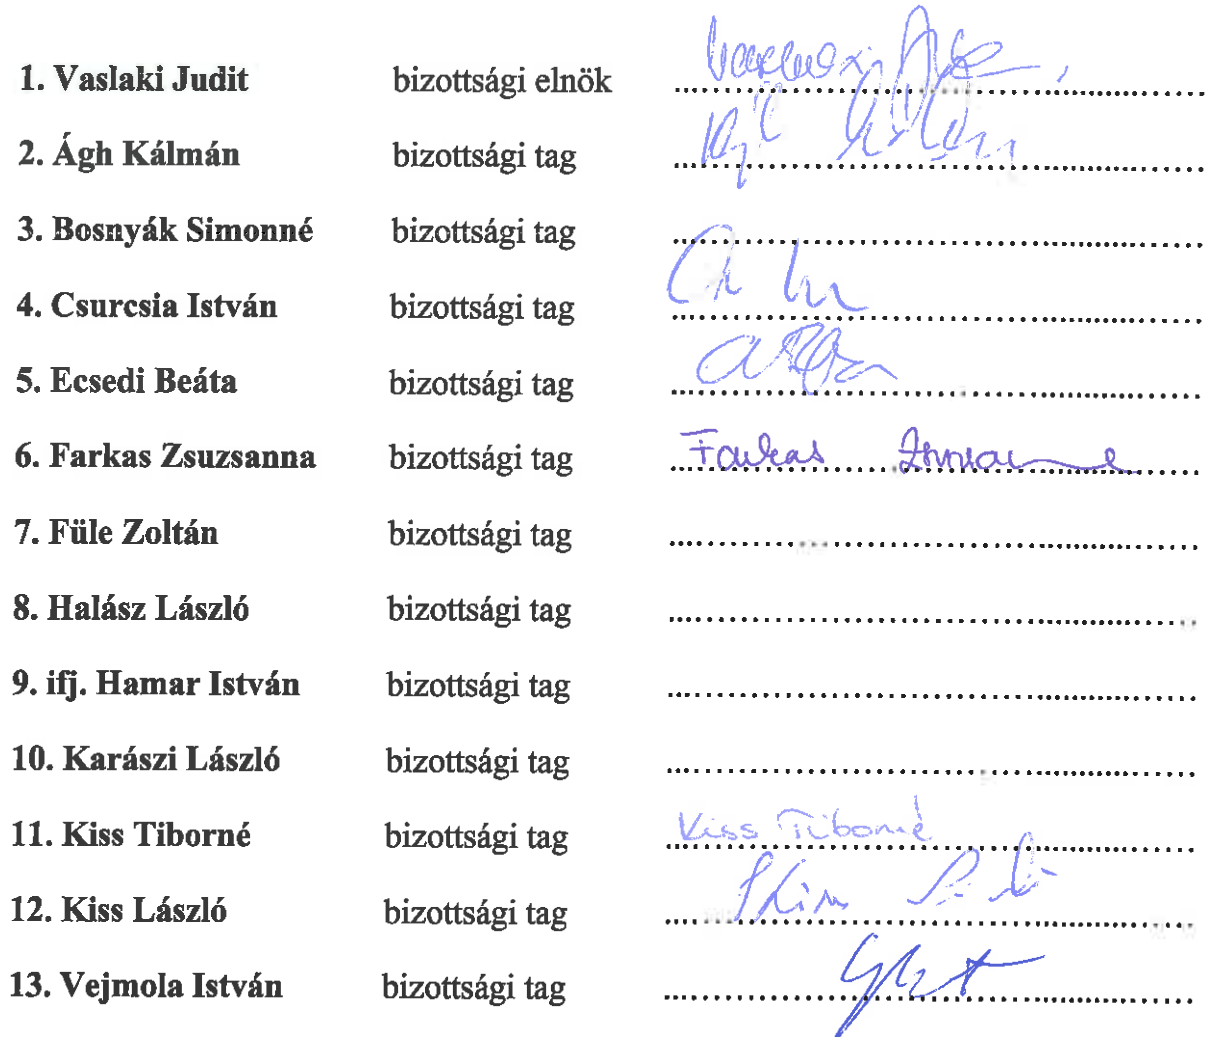 1. Vaslaki Judit bizottsági elnök
2. Ágh Kálmán bizottsági tag
3. Bosnyák Simonné bizottsági tag
4. Csurcsia István bizottsági tag
5. Ecsedi Beáta bizottsági tag
6. Farkas Zsuzsanna bizottsági tag Farkas Zsuzsanna
7. Füle Zoltán bizottsági tag
8. Halász László bizottsági tag
9. ifj. Hamar István bizottsági tag
10. Karászi László bizottsági tag
11. Kiss Tiborné bizottsági tag Kiss Tiborné
12. Kiss László bizottsági tag
13. Vejmola István bizottsági tag